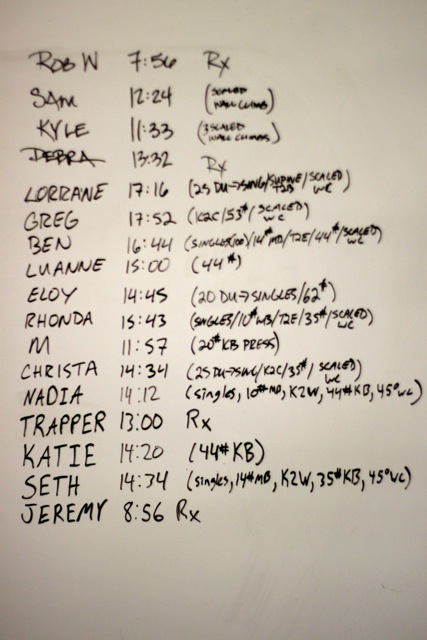 ROB W 7:56 Rx
SAM 12:24 (SCALED WALL CLIMB)
KYLE 11:33 (3 SCALED WALL CLIMBS)
DEBRA 13:32 Rx
LORRANE 17:16 (25 DU→SING/SUPINE T2B/SCALED WC)
GREG 17:52 (K2C/53#/SCALED WC)
BEN 16:44 (SINGLES(100)/14#MB/T2E/44#/SCALED WC)
LUANNE 15:00 (44#)
ELOY 14:45 (20 DU→SINGLES/62#)
RHONDA 15:43 (SINGLES/10#MB/T2E/35#/SCALED WC)
M 11:57 (20#KB PRESS)
CHRISTA 14:34 (25 DU→SING/K2C/35#/SCALED WC)
NADIA 14:12 (singles, 10#MB, K2W, 44#KB, 45°WC)
TRAPPER 13:00 Rx
KATIE 14:20 (44# KB)
SETH 14:34 (singles, 14#MB, K2W, 35#KB, 45°WC)
JEREMY 8:56 Rx